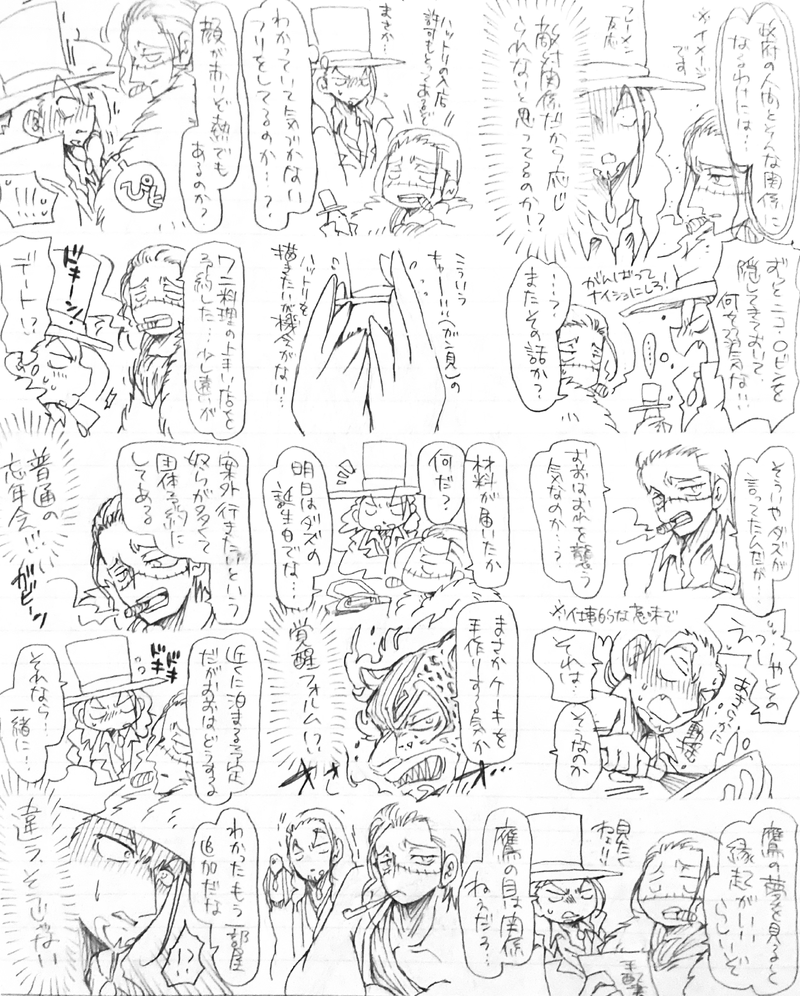 政府の人間とそんな関係に
なるわけには…
※イメージ
です
フレーメン
反応
敵対関係だから応じ
られないと思ってるのか!?
ハットリの入店
許可もとってあるぞ
まさか…
わかっていて気づかない
フリをしてるのか…?
顔が赤いぞ熱でも
あるのか?
ぴと
ずっとニコ・ロビンを
隠してきておいて
がんばって
ナイショにしろ!
……
…?
またその話か?
こういう
描きたいが機会がない…
ハットリを
ワニ料理の上手い店を
予約した…少し薬が
ドキーン!
デート!?
そういやダズが
言ってたんだが…
おまえはおれを襲う
気なのか…?
材料が届いたか
何だ?
明日はダズの
誕生日でな…
案外行きたいという
奴らが多くて
団体予約に
してある
普通の
忘年会!!!
ガビーン
※仕事6Sな意味で
それは…
そうなのか
まさかケーキを
手作りする気か
覚醒フォルム!?
近くに泊まる予定
だがおまえはどうする
ドキドキ
それなら…
一緒に…
鷹の夢を見ると
縁起がいい
らしいぞ
見たく
ねェ!!
鷹の目は関係
ねぇだろ…
わかったもう一部屋
追加だな
!?
違う、そうじゃない